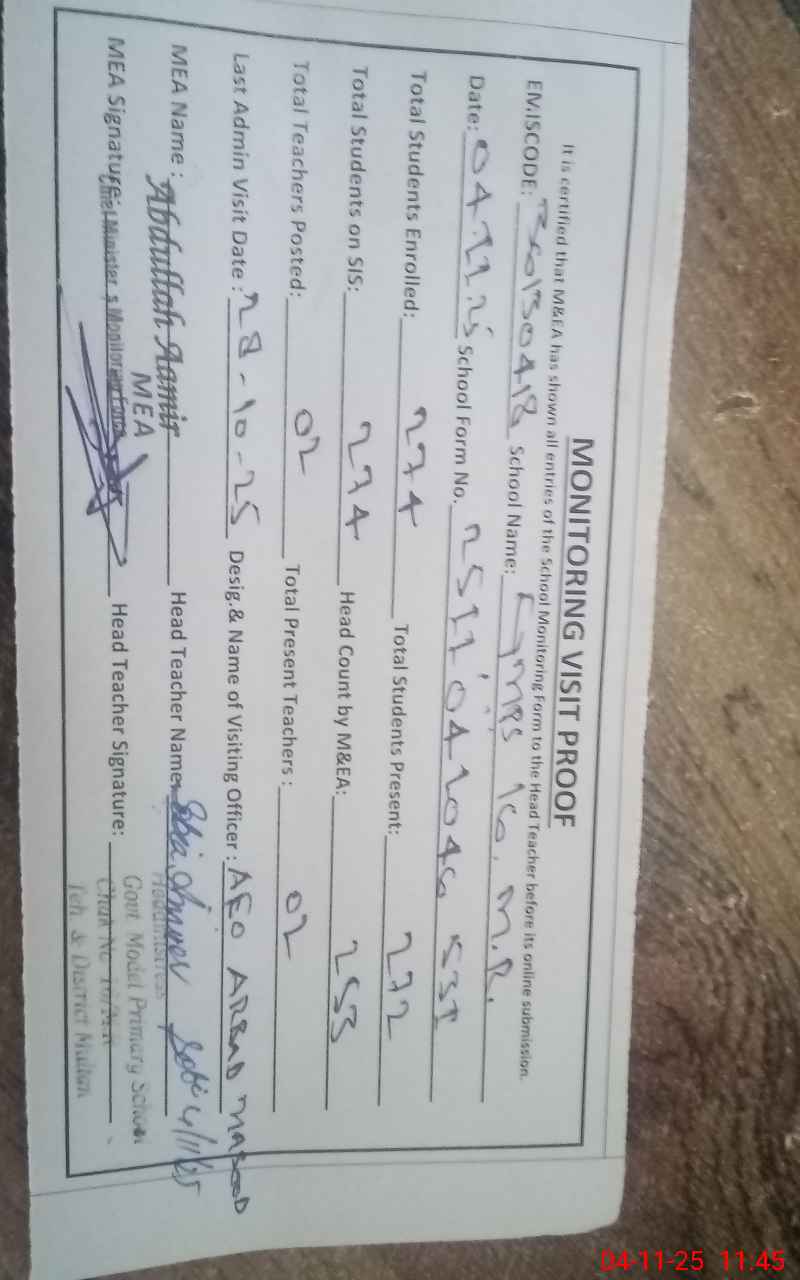 MONITORING VISIT PROOF
It is certified that M&EA has shown all entries of the School Monitoring Form to the Head Teacher before its online submission.
EMISCODE: School Name: 16. M.R.
Date: 04.11.25 School Form No.
Total Students Enrolled: 274 Total Students Present: 272
Total Students on SIS: 274 Head Count by M&EA: 253
Total Teachers Posted: 02 Total Present Teachers : 02
Last Admin Visit Date : 28-10-25 Desig.& Name of Visiting Officer : AEO ARBAB MASOOD
MEA Name : Abdullah Aamir Head Teacher Name:
MEA
Headmistress
MEA Signature: Chief Minister's Monitoring Force Head Teacher Signature:
4/11/25
Govt Model Primary School
Chak No 16/M.R
Teh. & District Multan
04-11-25 11:45